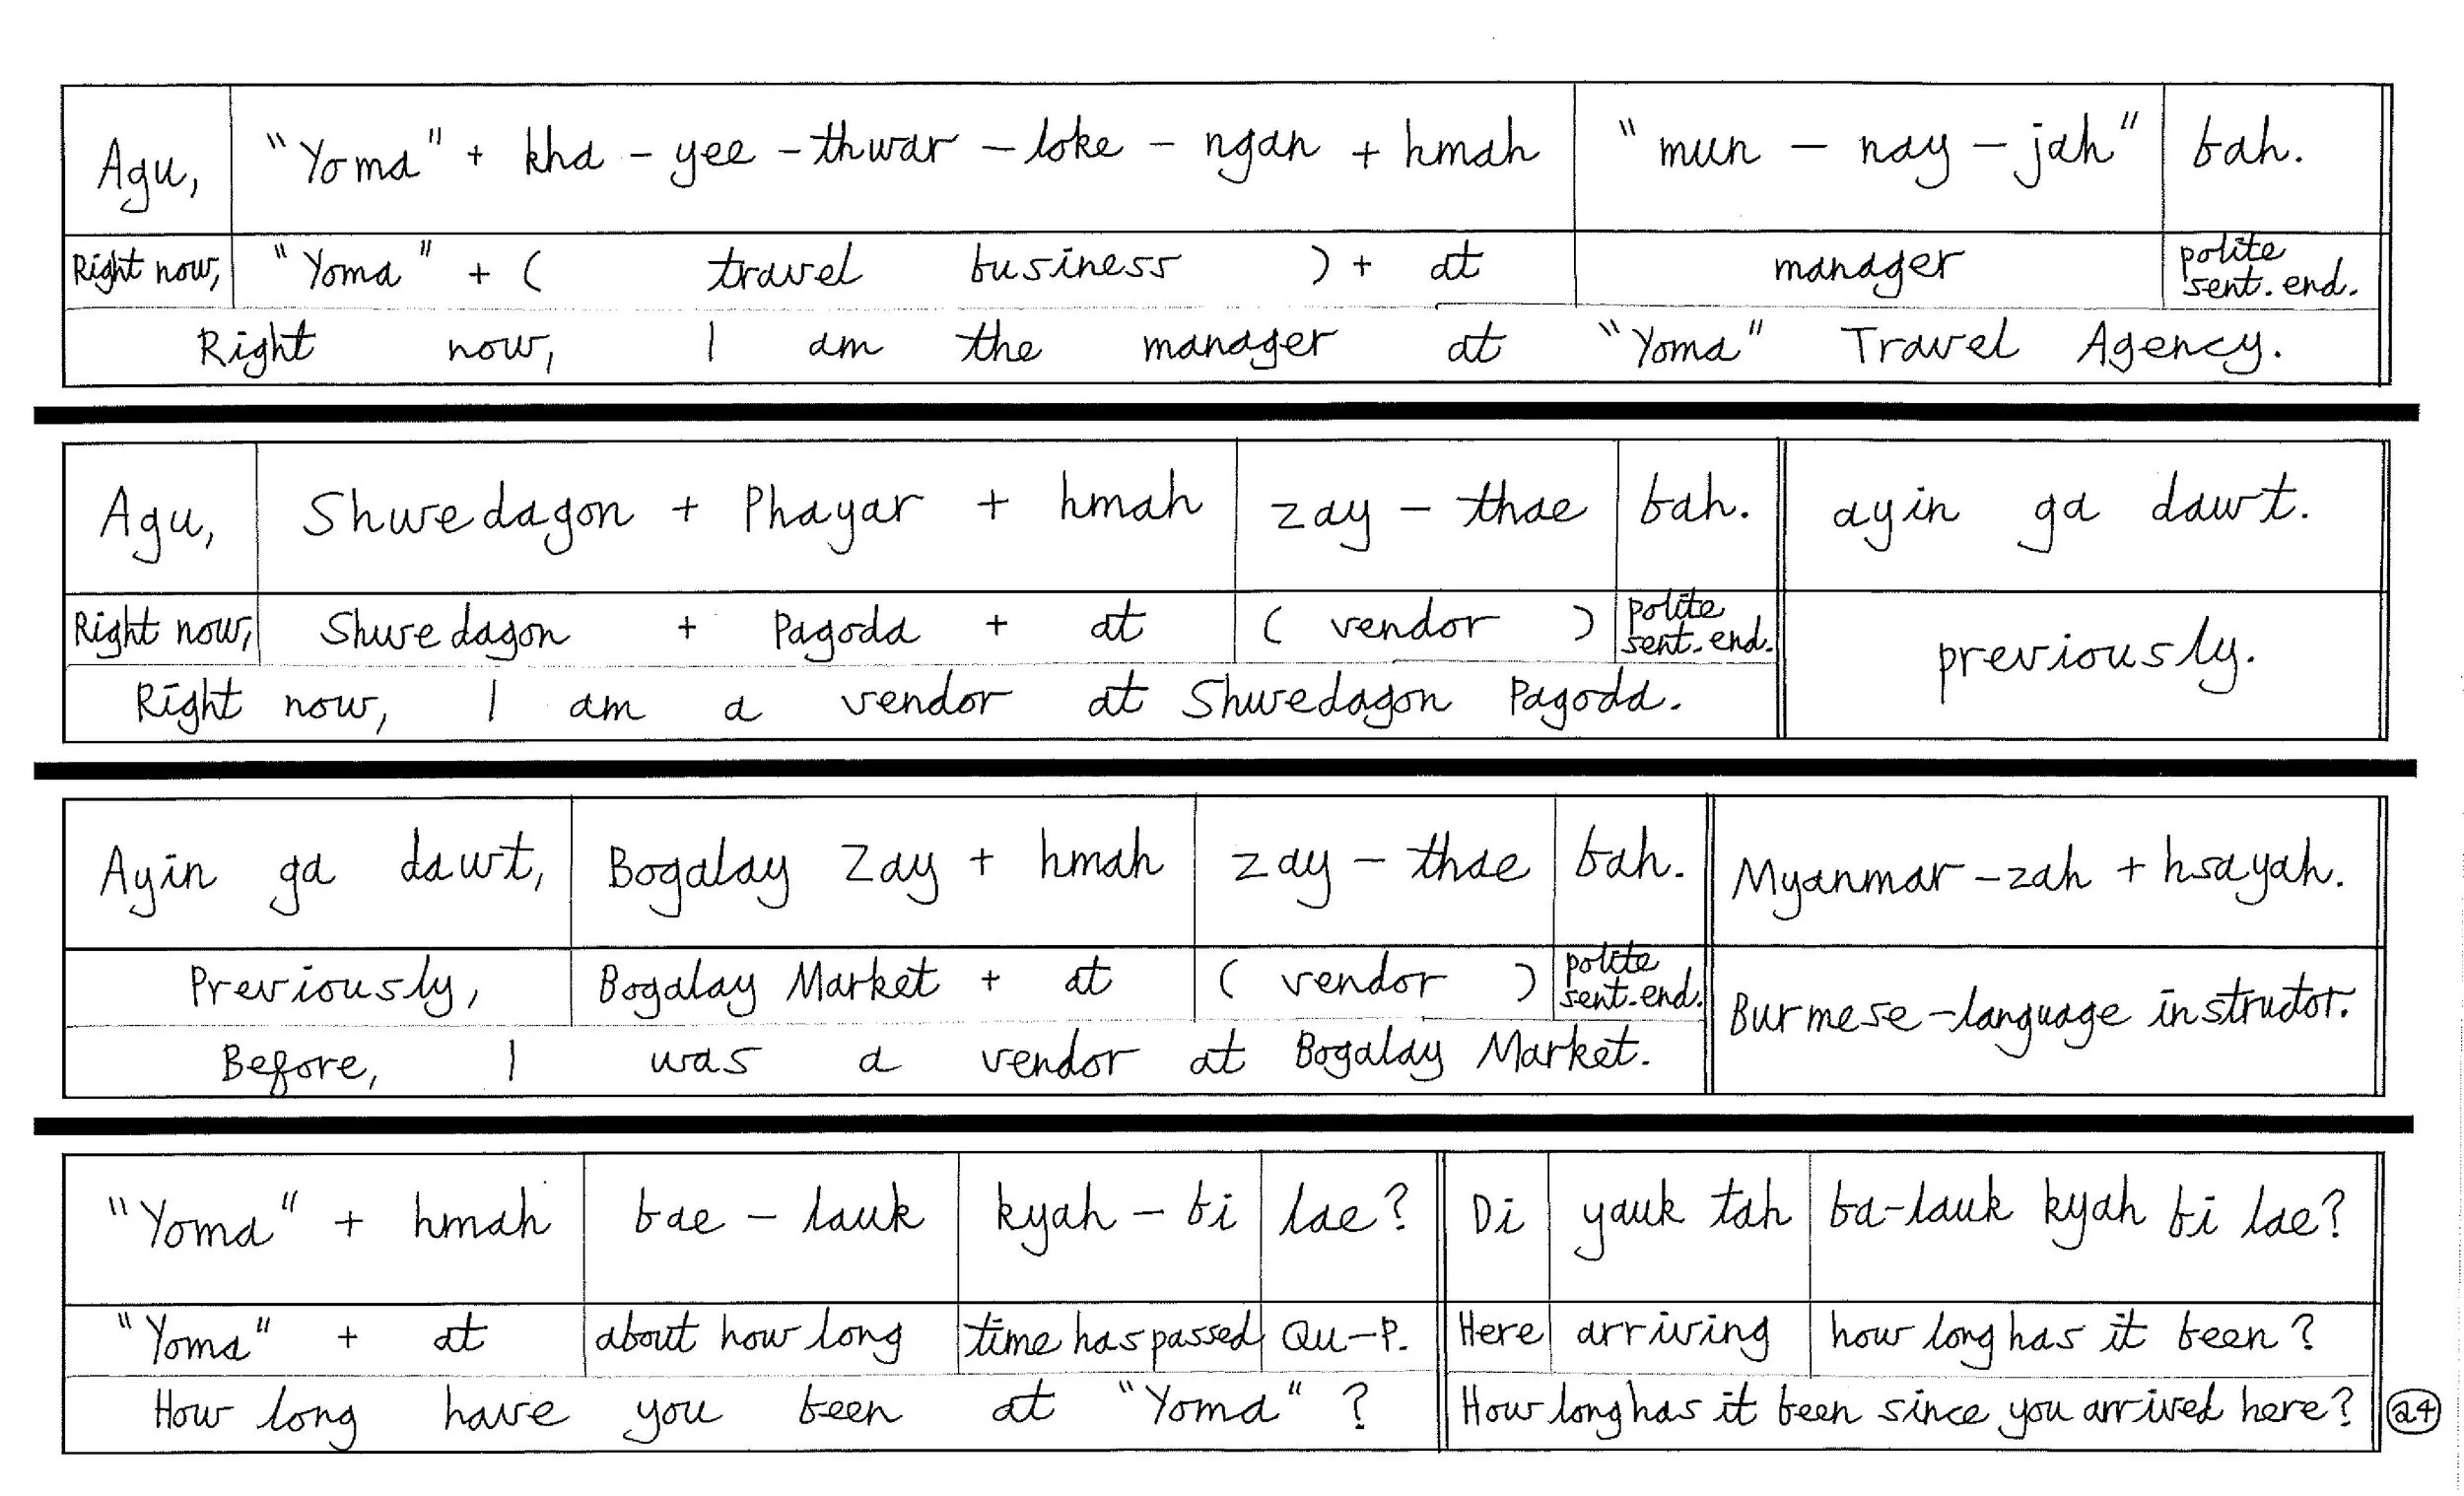 Agu, "Yoma" + kha - yee - thwar - loke - ngan + hmah "mun - nay - jah" bah.
Right now, "Yoma" + ( travel business ) + at manager polite sent. end.
Right now, I am the manager at "Yoma" Travel Agency.
Agu, Shwedagon + Phayar + hmah zay - thae bah. ayin ga dawt.
Right now, Shwedagon + Pagoda + at ( vendor ) polite sent. end. previously.
Right now, I am a vendor at Shwedagon Pagoda.
Ayin ga dawt, Bogalay Zay + hmah zay - thae bah. Myanmar-zah + hsayah.
Previously, Bogalay Market + at ( vendor ) polite sent. end. Burmese-language instructor.
Before, I was a vendor at Bogalay Market.
"Yoma" + hmah bae - lauk kyah - bi lae? Di yauk tah ba-lauk kyah bi lae?
"Yoma" + at about how long time has passed Qu-P. Here arriving how long has it been?
How long have you been at "Yoma"? How long has it been since you arrived here? 24